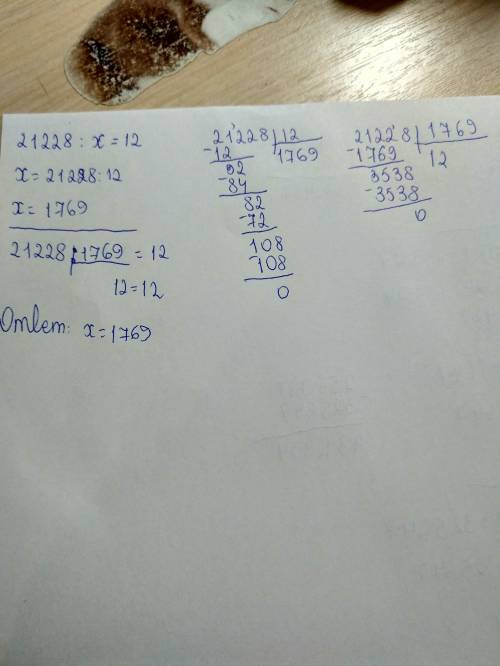 21228 : x = 12
x = 21228 : 12
x = 1769
21228 : 1769 = 12
12 = 12
Ответ: x = 1769
21228 | 12
-12 | 1769
92
-84
82
-72
108
-108
0
21228 | 1769
-1769 | 12
3538
-3538
0